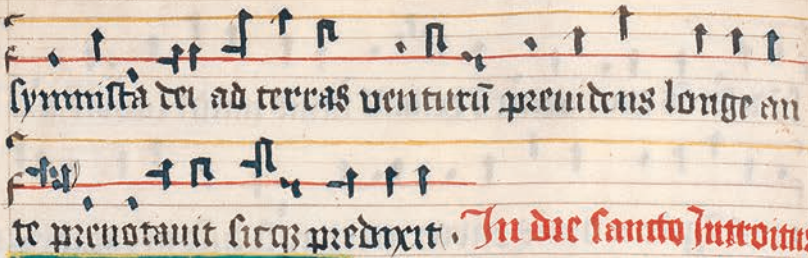 symmista dei ad terras venturū preuidens longe an
te prenotauit sicqꝫ predixit . In die sancto Introitus